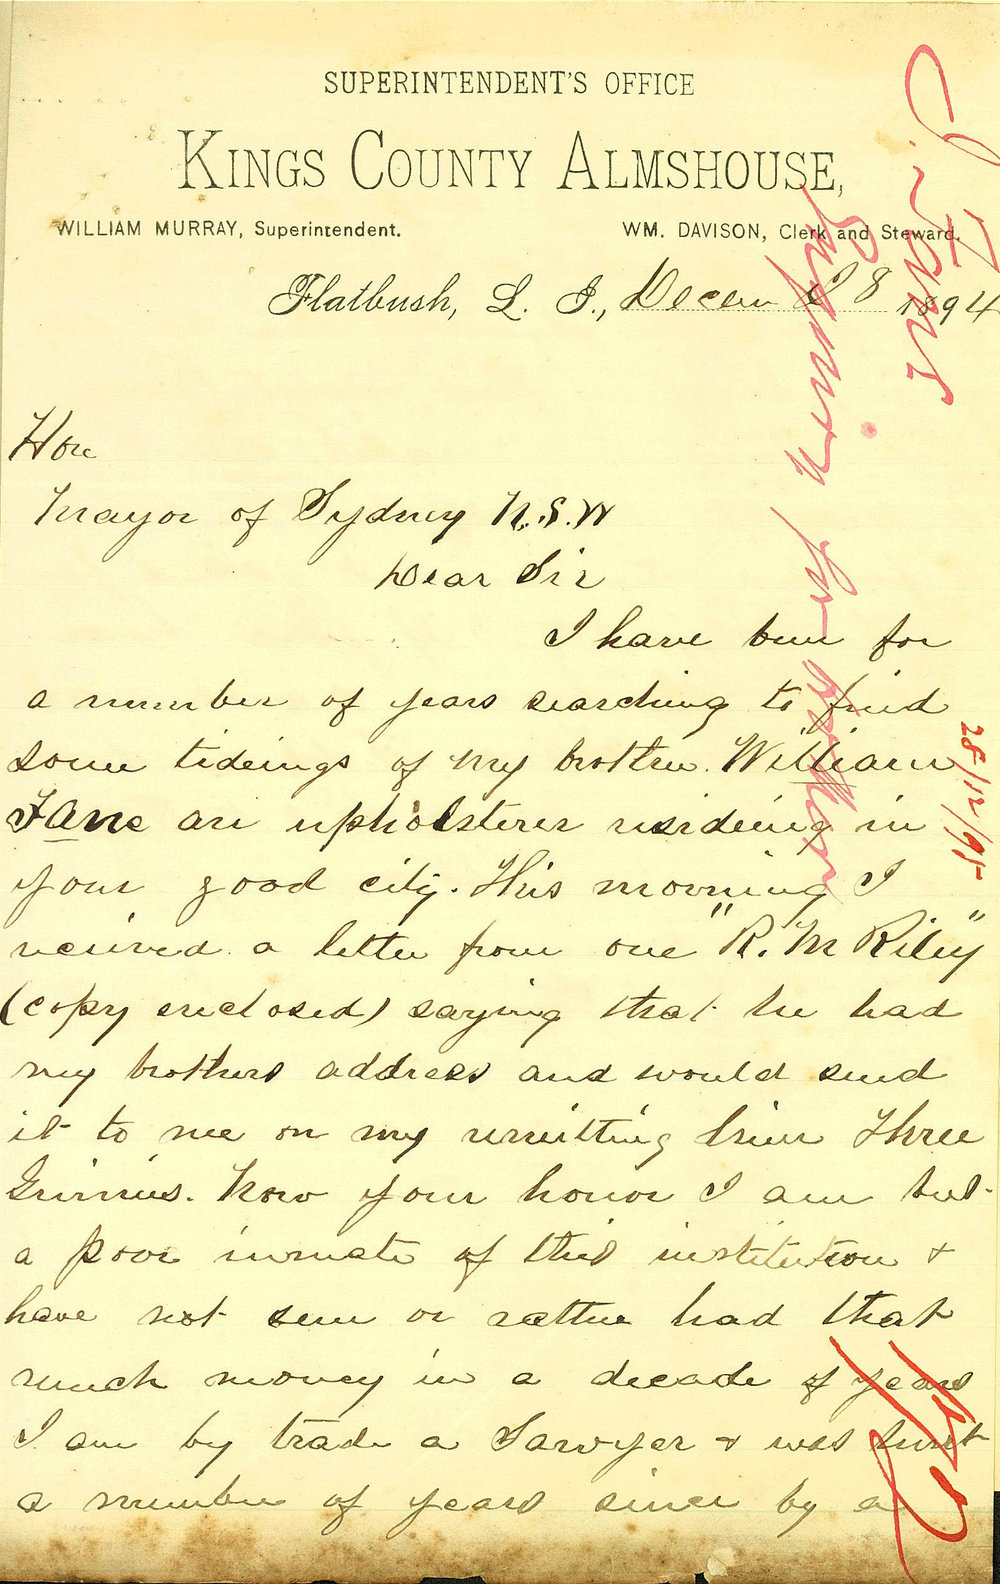 SUPERINTENDENT'S OFFICE
KINGS COUNTY ALMSHOUSE,
WILLIAM MURRAY, Superintendent.
WM. DAVISON, Clerk and Steward.
Flatbush, L. I., Decem 28 1894
Hon
Mayor of Sydney N.S.W
Dear Sir
I have been for
a number of years searching to find
some tidings of my brother William
Fane an upholsterer residing in
your good city. This morning I
received a letter from one "R. M Riley"
(copy enclosed) saying that he had
my brothers address and would send
it to me on my remitting him Three
Guinies. Now your honor I am but
a poor inmate of this institution &
have not seen or rather had that
much money in a decade of years
I am by trade a Sawyer & was hurt
a number of years since by a
J. Fane
for
28/12/95